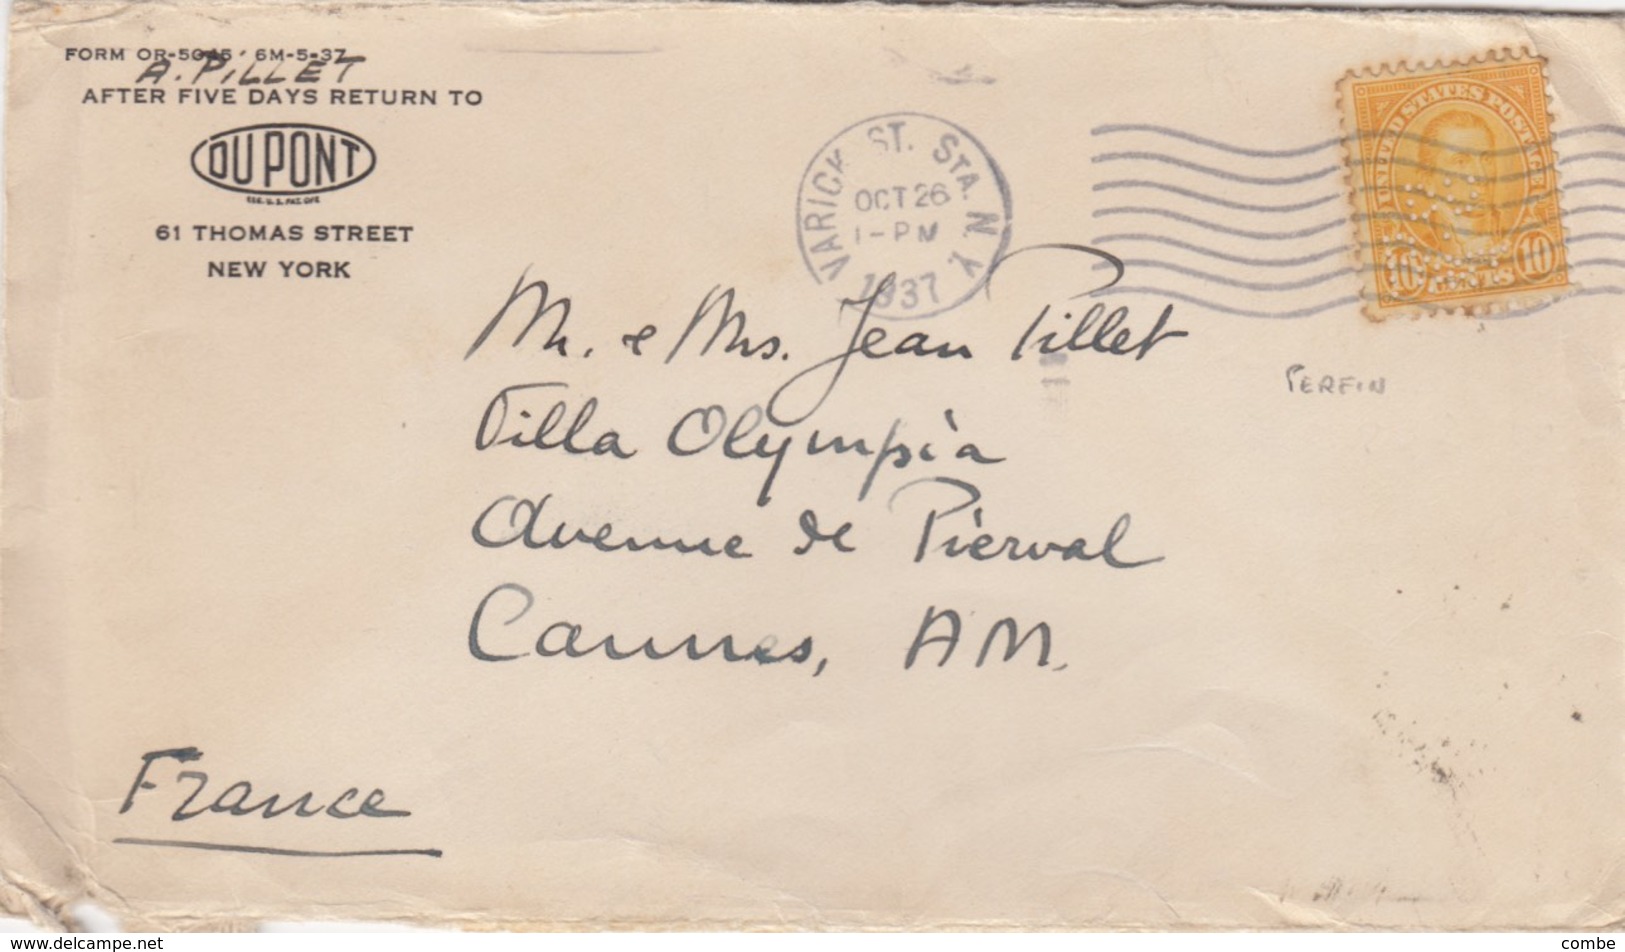 FORM OR-5045 6M-5-37
A. PILLET
AFTER FIVE DAYS RETURN TO
DU PONT
REG. U.S. PAT. OFF.
61 THOMAS STREET
NEW YORK
VARICK ST. STA. N.Y.
OCT 26
1-PM
1937
UNITED STATES POSTAGE
10 CENTS 10
Mr. & Mrs. Jean Pillet
PERFIN
Villa Olympia
Avenue de Pierval
Cannes, AM.
France
www.delcampe.net
combe